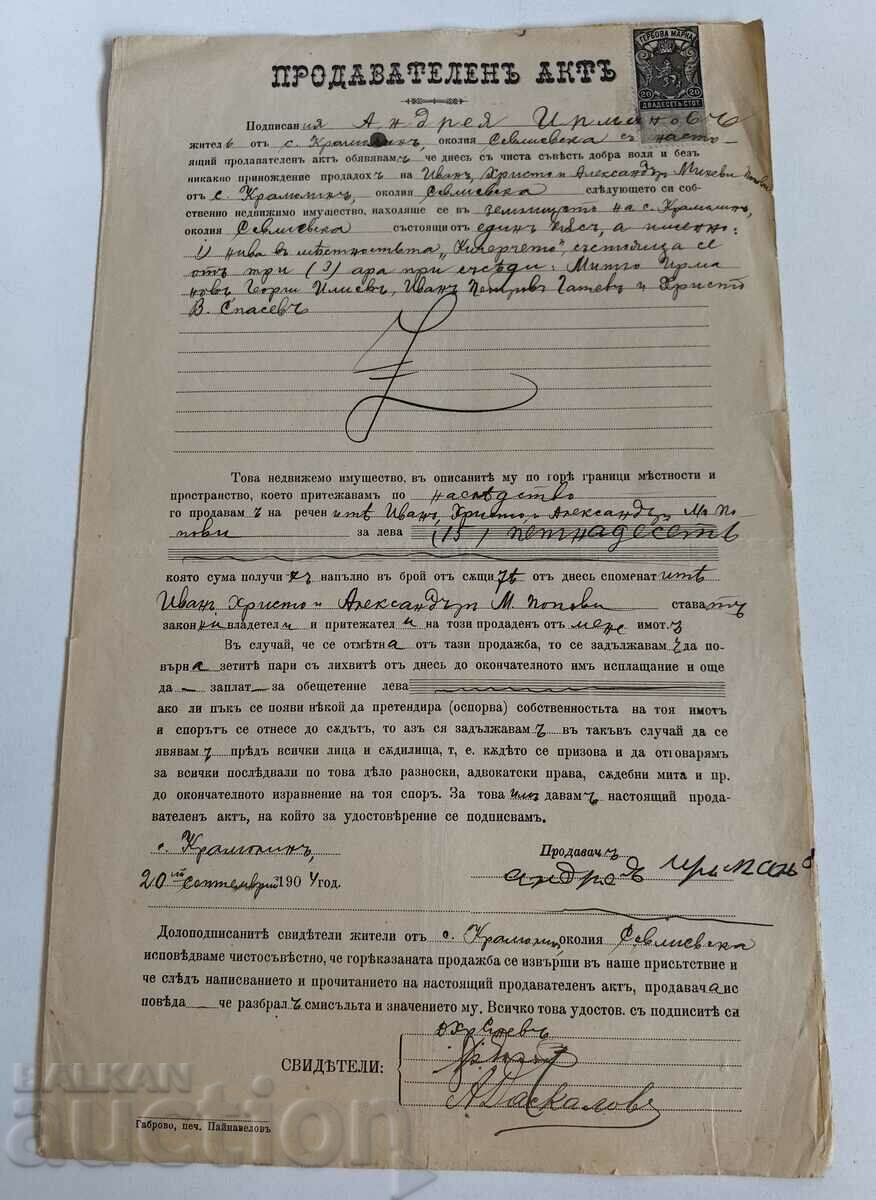 ГЕРБОВА МАРКА
20 20
ДВАДЕСЕТЬ СТОТ.
ПРОДАВАТЕЛЕНЪ АКТЪ
Подписания Андрея Ирмановъ
жителъ отъ с. Крамолинъ, околия Севлиевска съ насто-
ящий продавателен актъ обявявамъ че днесь съ чиста съвѣсть добра воля и безъ
никакво принождение продадохъ на Иванъ, Христо и Александъръ Миневи Попови
отъ с. Крамолинъ, околия Севлиевска слѣдующето си соб-
ственно недвижимо имущество, находяще се въ землището на с. Крамолинъ,
околия Севлиевска състояти отъ единъ къс, а именно:
1) нива въ мѣстностьта „Кичерчето", състояща се
отъ три (3) ара при съсѣди: Митю Ирма
новъ Георги Илиевъ, Иванъ Петровъ Гатевъ и Христо
В. Спасевъ
Това недвижемо имущество, въ описаните му по горѣ граници мѣстности и
пространство, което притежавамъ по наследство
го продавамъ на реченитѣ Иванъ, Христо, и Александъръ М. По
пови за лева (15) петнадесеть
която сума получихъ напълно въ брой отъ сѫщитѣ отъ днесь споменатитѣ
Иванъ Христо и Александъръ М. Попови ставатъ
законни владетели и притежатели на този продаденъ отъ мене имотъ
Въ случай, че се отмѣтна отъ тази продажба, то се задължавамъ да по-
върна зетитѣ пари съ лихвитѣ отъ днесь до окончателното имъ исплащание и още
да заплат за обещетение лева
ако ли пъкъ се появи нѣкой да претендира (оспорва) собственностьта на тоя имотъ
и спорътъ се отнесе до сѫдътъ, то азъ ся задължавамъ въ такъвъ случай да се
явявамъ прѣдъ всички лица и сѫдилища, т. е. кѫдѣто се призова и да отговарямъ
за всички послѣдвали по това дѣло разноски, адвокатски права, сѫдебни мита и пр.
до окончателното изравнение на тоя споръ. За това имъ давамъ настоящий прода-
вателенъ актъ, на който за удостовѣрение се подписвамъ.
с. Крамолинъ, Продавачъ
20 ий септемврий 1904 год. андрея Ирьманов
Долоподписанитѣ свидѣтели жители отъ с. Крамолинъ, околия Севлиевска
исповѣдваме чистосъвѣстно, че горѣказаната продажба се извърши въ наше присътствие и
че слѣдъ написванието и прочитанието на настоящий продавателенъ актъ, продавача ис
повѣда че разбралъ смисълъта и значението му. Всичко това удостов. съ подписитѣ си
СВИДѢТЕЛИ:
А. Даскаловъ
Габрово, печ. Пайнавеловъ
BALKAN
auction